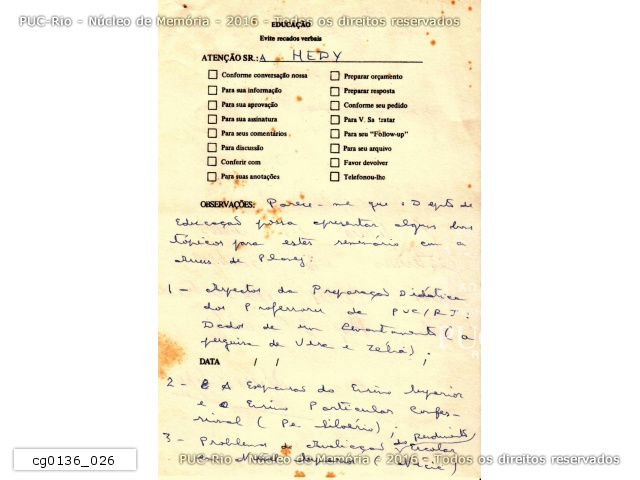 PUC-Rio - Núcleo de Memória - 2016 - Todos os direitos reservados
EDUCAÇÃO
Evite recados verbais
ATENÇÃO SR.: A HEDY
Conforme conversação nossa
Para sua informação
Para sua aprovação
Para sua assinatura
Para seus comentários
Para discussão
Conferir com
Para suas anotações
Preparar orçamento
Preparar resposta
Conforme seu pedido
Para V. Sa tratar
Para seu "Follow-up"
Para seu arquivo
Favor devolver
Telefonou-lhe
OBSERVAÇÕES: Parece-me que o Depto de
Educação possa apresentar alguns dos
tópicos para este seminário com a
de Planej:
1 - Aspectos da Preparação Didática
dos Professores da PUC/RJ:
Dados de um levantamento (a
pesquisa de Vera e Zélia);
DATA / /
2 - A Expansão do Ensino Superior
e o Ensino Particular Confes-
sional (Pe.
3 - Problemas de Avaliação do
PUC-Rio - Núcleo de Memória - 2016 - Todos os direitos reservados
cg0136_026